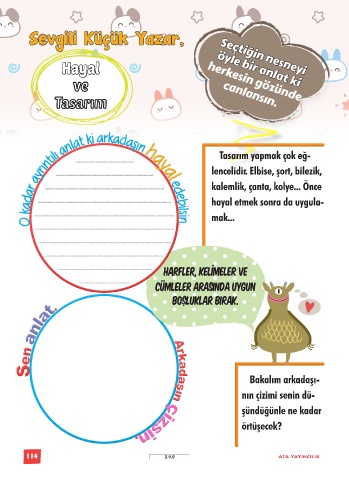 Sevgili Küçük Yazar,
Hayal
ve
Tasarım
Seçtiğin nesneyi
öyle bir anlat ki
herkesin gözünde
canlansın.
O kadar ayrıntılı anlat ki arkadaşın hayal edebilsin
Tasarım yapmak çok eğ-
lencelidir. Elbise, şort, bilezik,
kalemlik, çanta, kolye... Önce
hayal etmek sonra da uygula-
mak...
HARFLER, KELİMELER VE
CÜMLELER ARASINDA UYGUN
BOŞLUKLAR BIRAK.
Sen anlat,
Arkadaşın çizsin.
Bakalım arkadaşı-
nın çizimi senin dü-
şündüğünle ne kadar
örtüşecek?
114
ATA YAYINCILIK